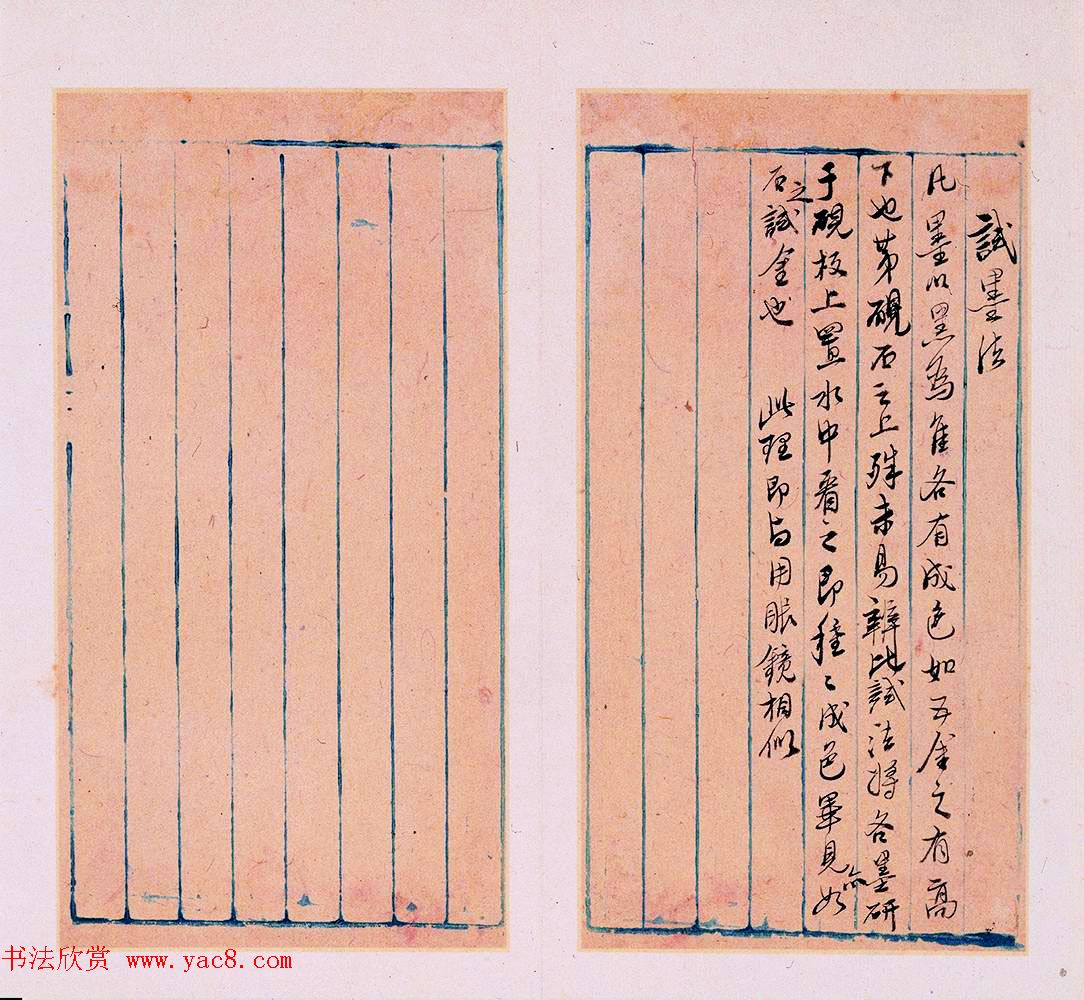 試墨法
凡墨以黑為佳各有成色如五金之有高
下也第硯石之上殊未易辨比試法將各墨研
于硯板上置水中看之即種〻成色畢見亦如
石之試金也　此理即与用眼鏡相似
书法欣赏 www.yac8.com